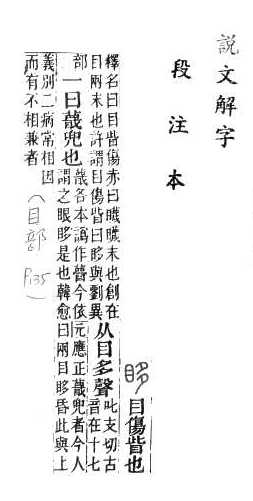 說文解字
段注本
眵
目傷眥也
釋名曰目眥傷赤曰䁾䁾末也創在
目兩末也許謂目傷眥曰眵與劉異
从目多聲
叱支切古
音在十七
部
一曰蔑兜也
蔑各本譌作瞢今依元應正蔑兜者今人
謂之眼眵是也韓愈曰兩目眵昏此與上
義別二病常相因
而有不相兼者
(目部 P.135)